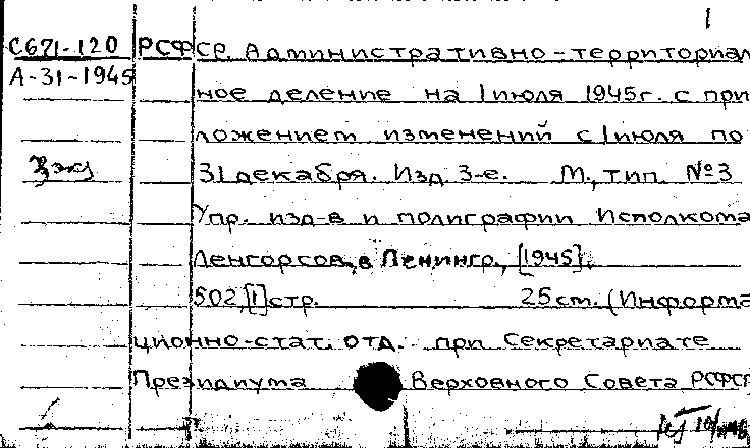 1
С671-120 РСФСР. Административно-территориал
А-31-1945
ное деление на 1 июля 1945г. с при
ложением изменений с 1 июля по
31 декабря. Изд. 3-е. М., тип. №3
Упр. изд-в и полиграфии Исполкома
Ленгорсов. в Ленингр., [1945].
502,[1]стр. 25 см. (Информа
ционно-стат. отд. при Секретариате
Президиума Верховного Совета РСФСР